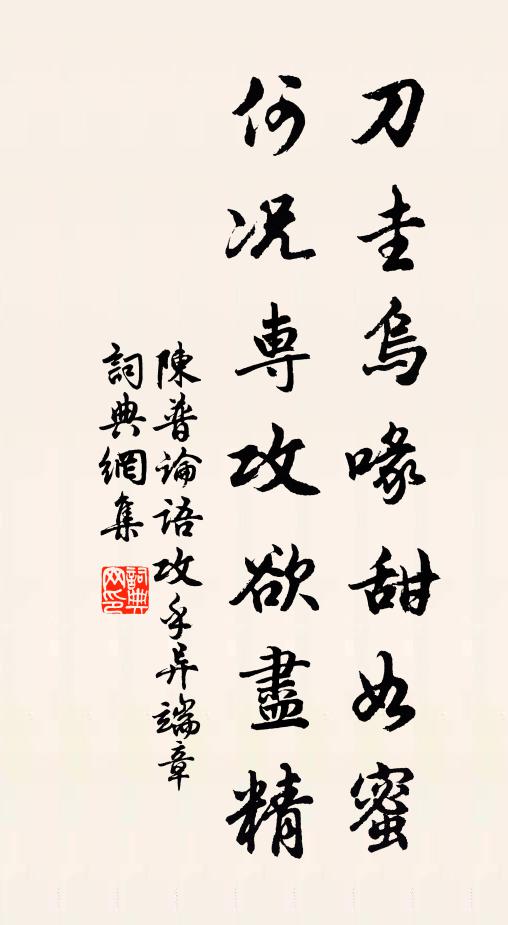 刀圭烏喙甜如蜜
何况專攻欲盡精
陳普論語攻乎异端章
詞典網集
詞典網印